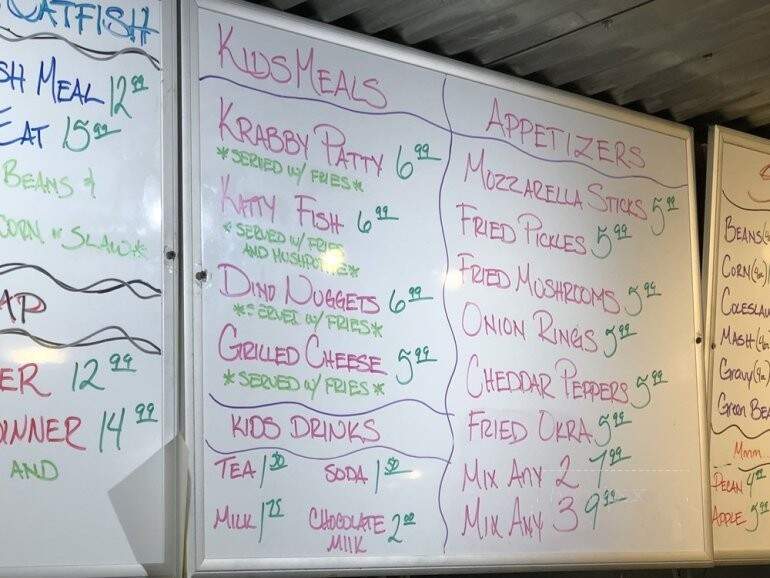 CATFISH
SH MEAL 12 99
EAT 15 99
BEANS &
CORN or SLAW*
AP
ER 12 99
INNER 14 99
AND
KIDS MEALS
KRABBY PATTY 6 99
*SERVED W/ FRIES*
KATTY FISH 6 99
*SERVED W/ FRIES
AND HUSHPUPPIE*
DINO NUGGETS 6 99
*SERVED W/ FRIES*
GRILLED CHEESE 5 99
*SERVED W/ FRIES*
KIDS DRINKS
TEA 1 50 SODA 1 50
MILK 1 75 CHOCOLATE 2 00
MIlK
APPETIZERS
MOZZARELLA STICKS 5 99
FRIED PICKLES 5 99
FRIED MUSHROOMS 5 99
ONION RINGS 5 99
CHEDDAR PEPPERS 5 99
FRIED OKRA 5 99
MIX ANY 2 7 99
MIX ANY 3 9 99
BEANS
CORN
COLESLAW
MASH
Gravy
Green Bea
Mmm
PECAN 4
APPLE 3 99